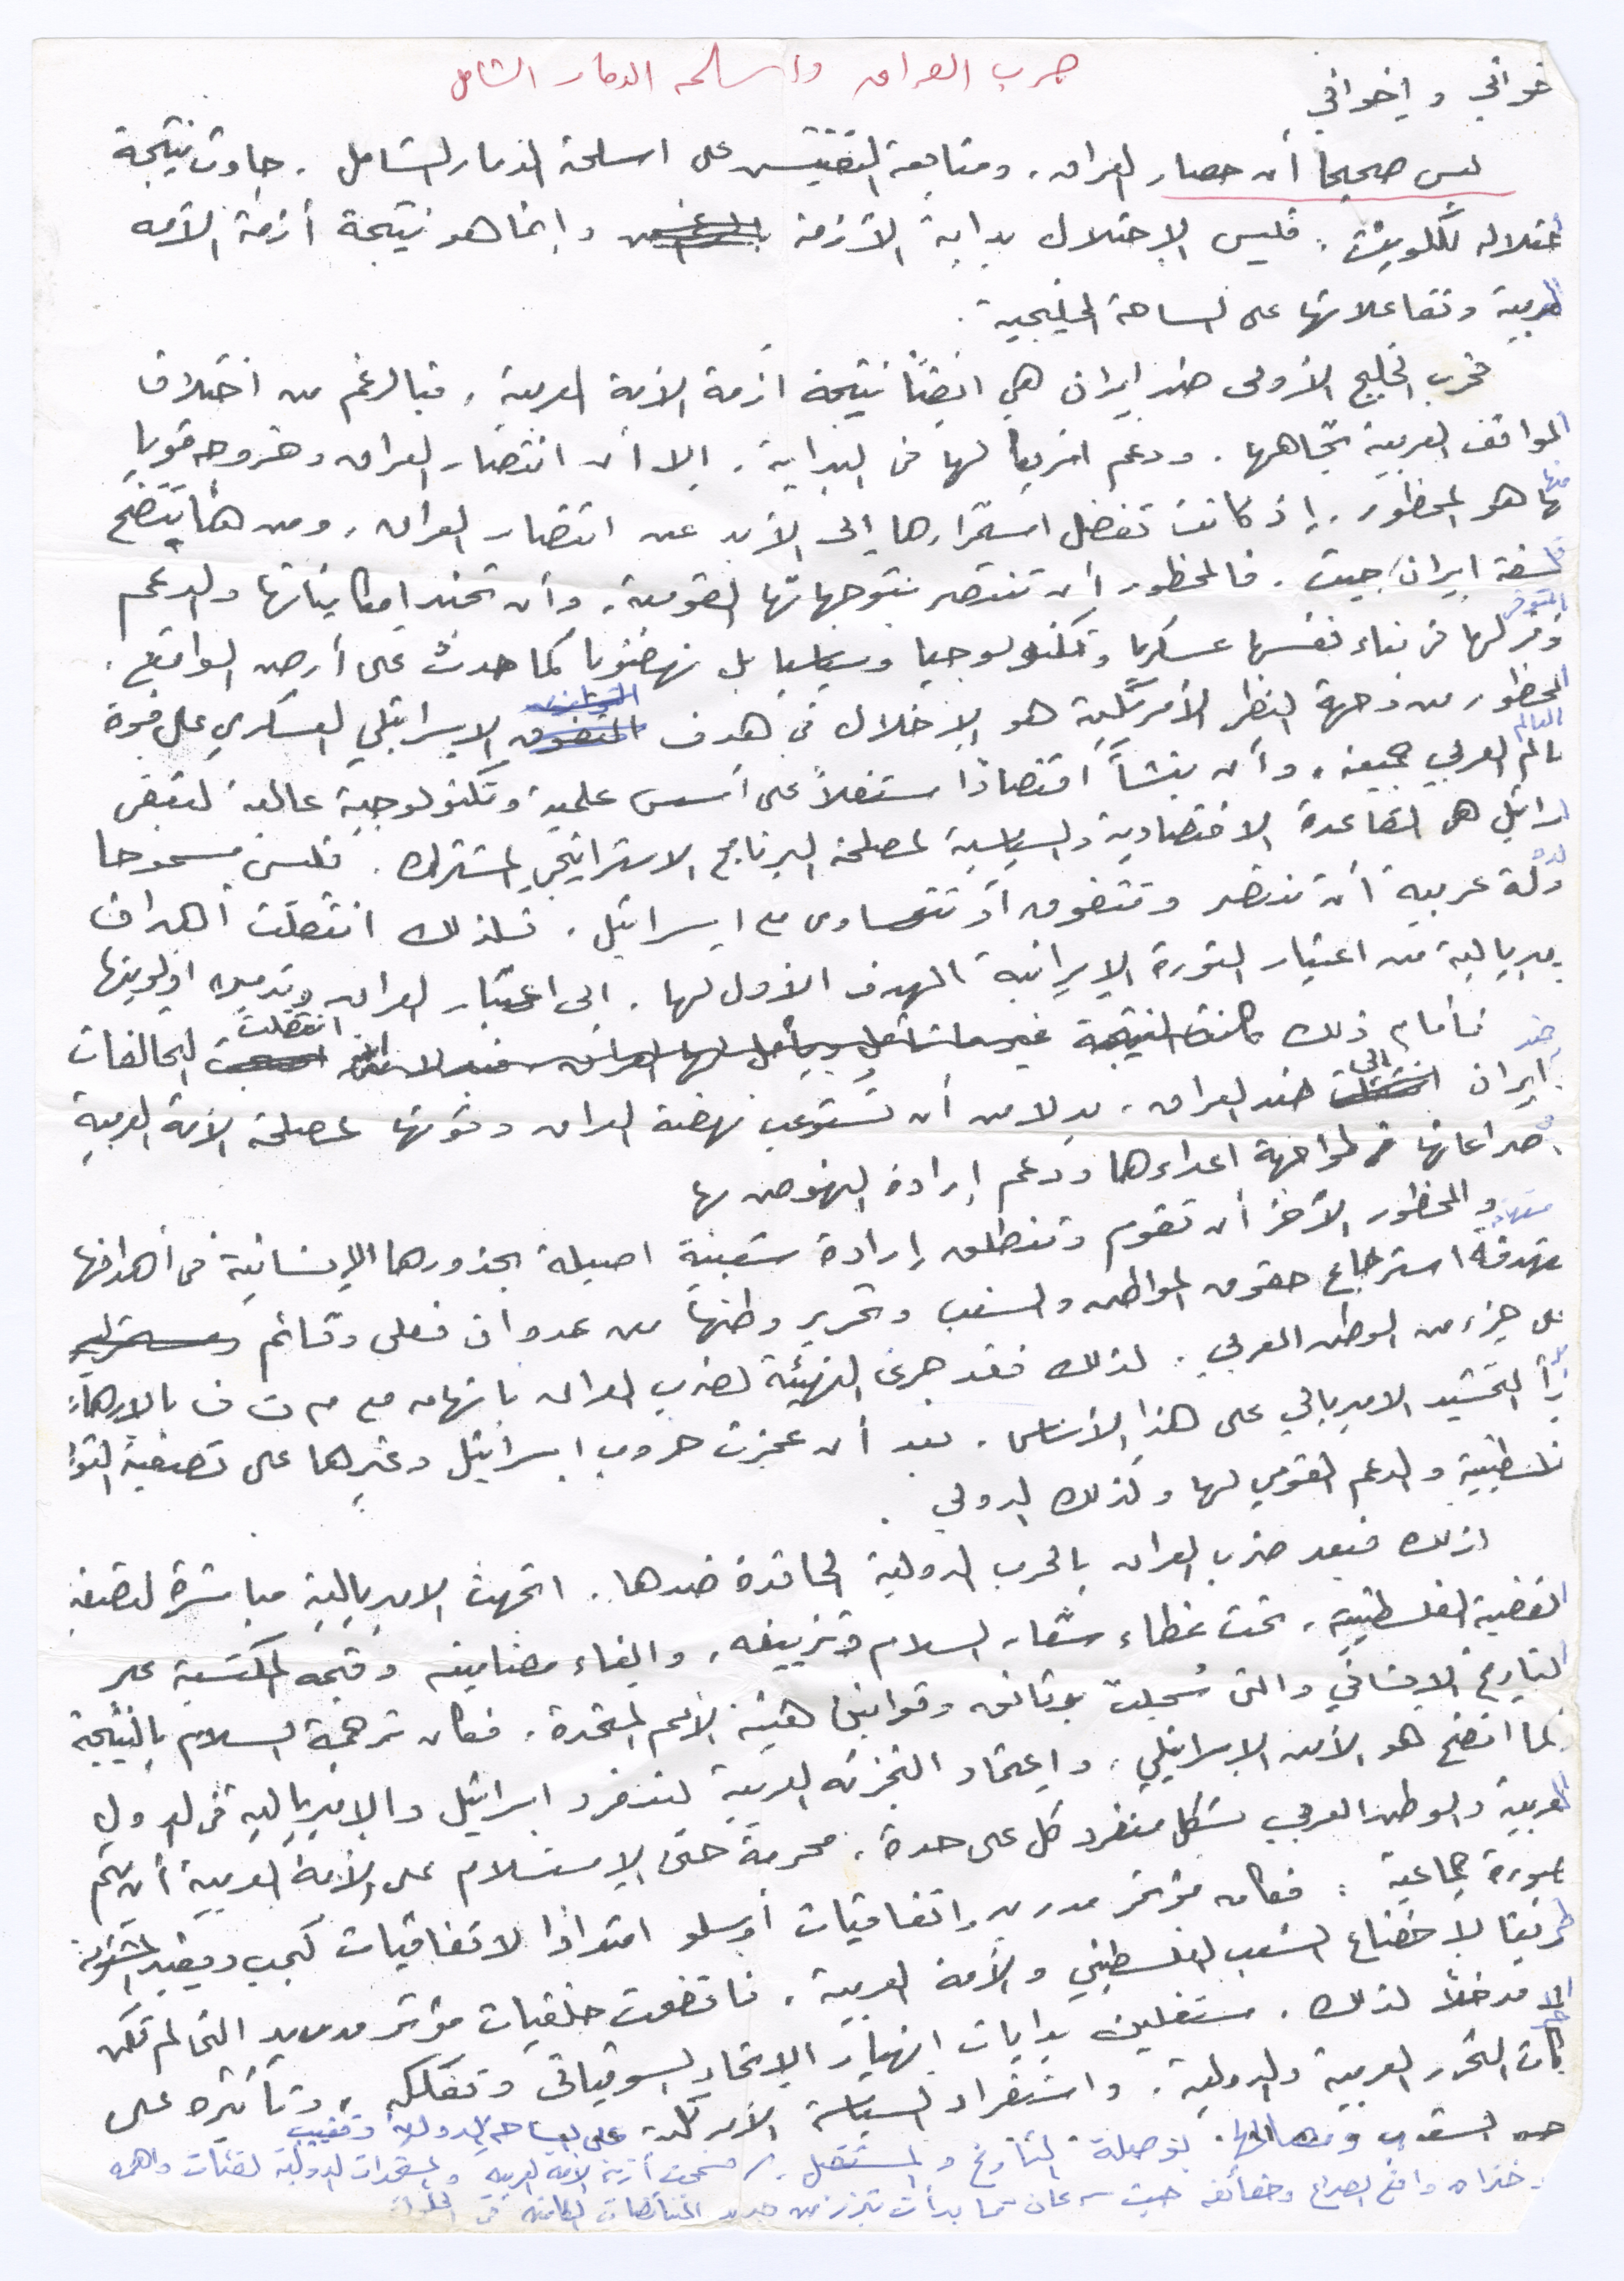 حرب العراق وأسلحة الدمار الشامل
خواتي و إخواني
ليس صحيحاً أن حصار العراق، ومتابعة التفتيش على اسلحة الدمار الشامل، جاءت نتيجة
احتلاله للكويت. فليس الاحتلال بداية الأزمة وانما هو نتيجة أزمة الأمة
العربية وتفاعلاتها على الساحة الخليجية.
فحرب الخليج الأولى ضد ايران هي ايضاً نتيجة أزمة الأمة العربية، فبالرغم من اختلاف
المواقف العربية تجاهها، ودعم امريكا لها في البداية، إلا أن انتصار العراق وخروجه قويا
منها هو المحظور، إذ كانت تفضل استمرارها إلى الأبد عن انتصار العراق، ومن هنا يتضح
فلسفة ايران جيت. فالمحظور أن تنتصر بتوجهاتها القومية، وأن تجند امكانياتها والدعم
المتوفر لها في بناء نفسها عسكريا وتكنولوجيا وسياسيا بل نهضويا كما حدث على أرض الواقع.
المحظور من وجهة النظر الأمريكية هو الإخلال في هدف التفوق الإسرائيلي العسكري على قوة
العالم العربي جميعه، وأن ينشأ اقتصادا مستقلاً على أسس علمية وتكنولوجية عالية لتبقى
اسرائيل هي القاعدة الاقتصادية والسياسية لمصلحة البرنامج الاستراتيجي المشترك. فليس مسموحا
لدولة عربية أن تنتصر وتتفوق أو تتساوى مع اسرائيل، فلذلك انتقلت أهداف
الامبريالية من اعتبار الثورة الإيرانية الهدف الأول لها، الى اعتبار العراق وتدميره اولويتها
فأمام ذلك كانت النتيجة غير ما تأمل لها العراق انتقلت التحالفات
ضد ايران الى ضد العراق، بدلا من أن تستوعب نهضة العراق وقوتها لمصلحة الأمة العربية
في صراعاتها لمواجهة اعداءها ودعم إرادة النهوض بها
والمحظور الآخر أن تقوم وتنطلق إرادة شعبية اصيلة بجذورها الإنسانية في أهدافها
مستهدفة استرجاع حقوق المواطن والشعب وتحرير وطنها من عدوان فعلي وقائم
على جزء من الوطن العربي. لذلك فقد جرى التهيئة لضرب العراق باتهامه مع م ت ف بالإرهاب
بدأ التحشيد الامبريالي على هذا الأساس، بعد أن عجزت حروب اسرائيل وغيرها على تصفية الثورة
الفلسطينية والدعم القومي لها وكذلك الدولي.
لذلك فبعد ضرب العراق بالحرب الدولية الحاقدة ضدها، اتجهت الامبريالية مباشرة لتصفية
القضية الفلسطينية، تحت غطاء شعار السلام وتزييفه، والغاء مضامينه وقيمه المكتسبة عبر
التاريخ الانساني والتي سُجلت بوثائق وقوانين هيئة الأمم المتحدة، فكان ترجمة السلام بالنتيجة
كما اتضح هو الأمن الإسرائيلي، واعتماد التجزئة العربية لتنفرد اسرائيل والامبريالية في الدول
العربية والوطن العربي بشكل منفرد كل على حدة، محرمة حتى الإستسلام على الأمة العربية أن يتم
بصورة جماعية. فكان مؤتمر مدريد واتفاقيات أوسلو امتدادا لاتفاقيات كمب ديفيد المشؤومة
طريقا لإخضاع الشعب الفلسطيني والأمة العربية، فاتضحت خلفيات مؤتمر مدريد التي لم تكن
الا مدخلاً لذلك، مستغلين بدايات انهيار الاتحاد السوفياتي وتفككه، وتأثيره على
حركات التحرر العربية والدولية، واستفراد السياسة الأمريكية على الساحة الدولية وتغييب
الشعوب ومصالحها، بوصلة التاريخ والمستقبل، أزمة الأمة العربية والمستجدات الدولية
واقع الصراع وحقائقه حيث سرعان ما بدأت تبرز من جديد التناقضات الكامنة في